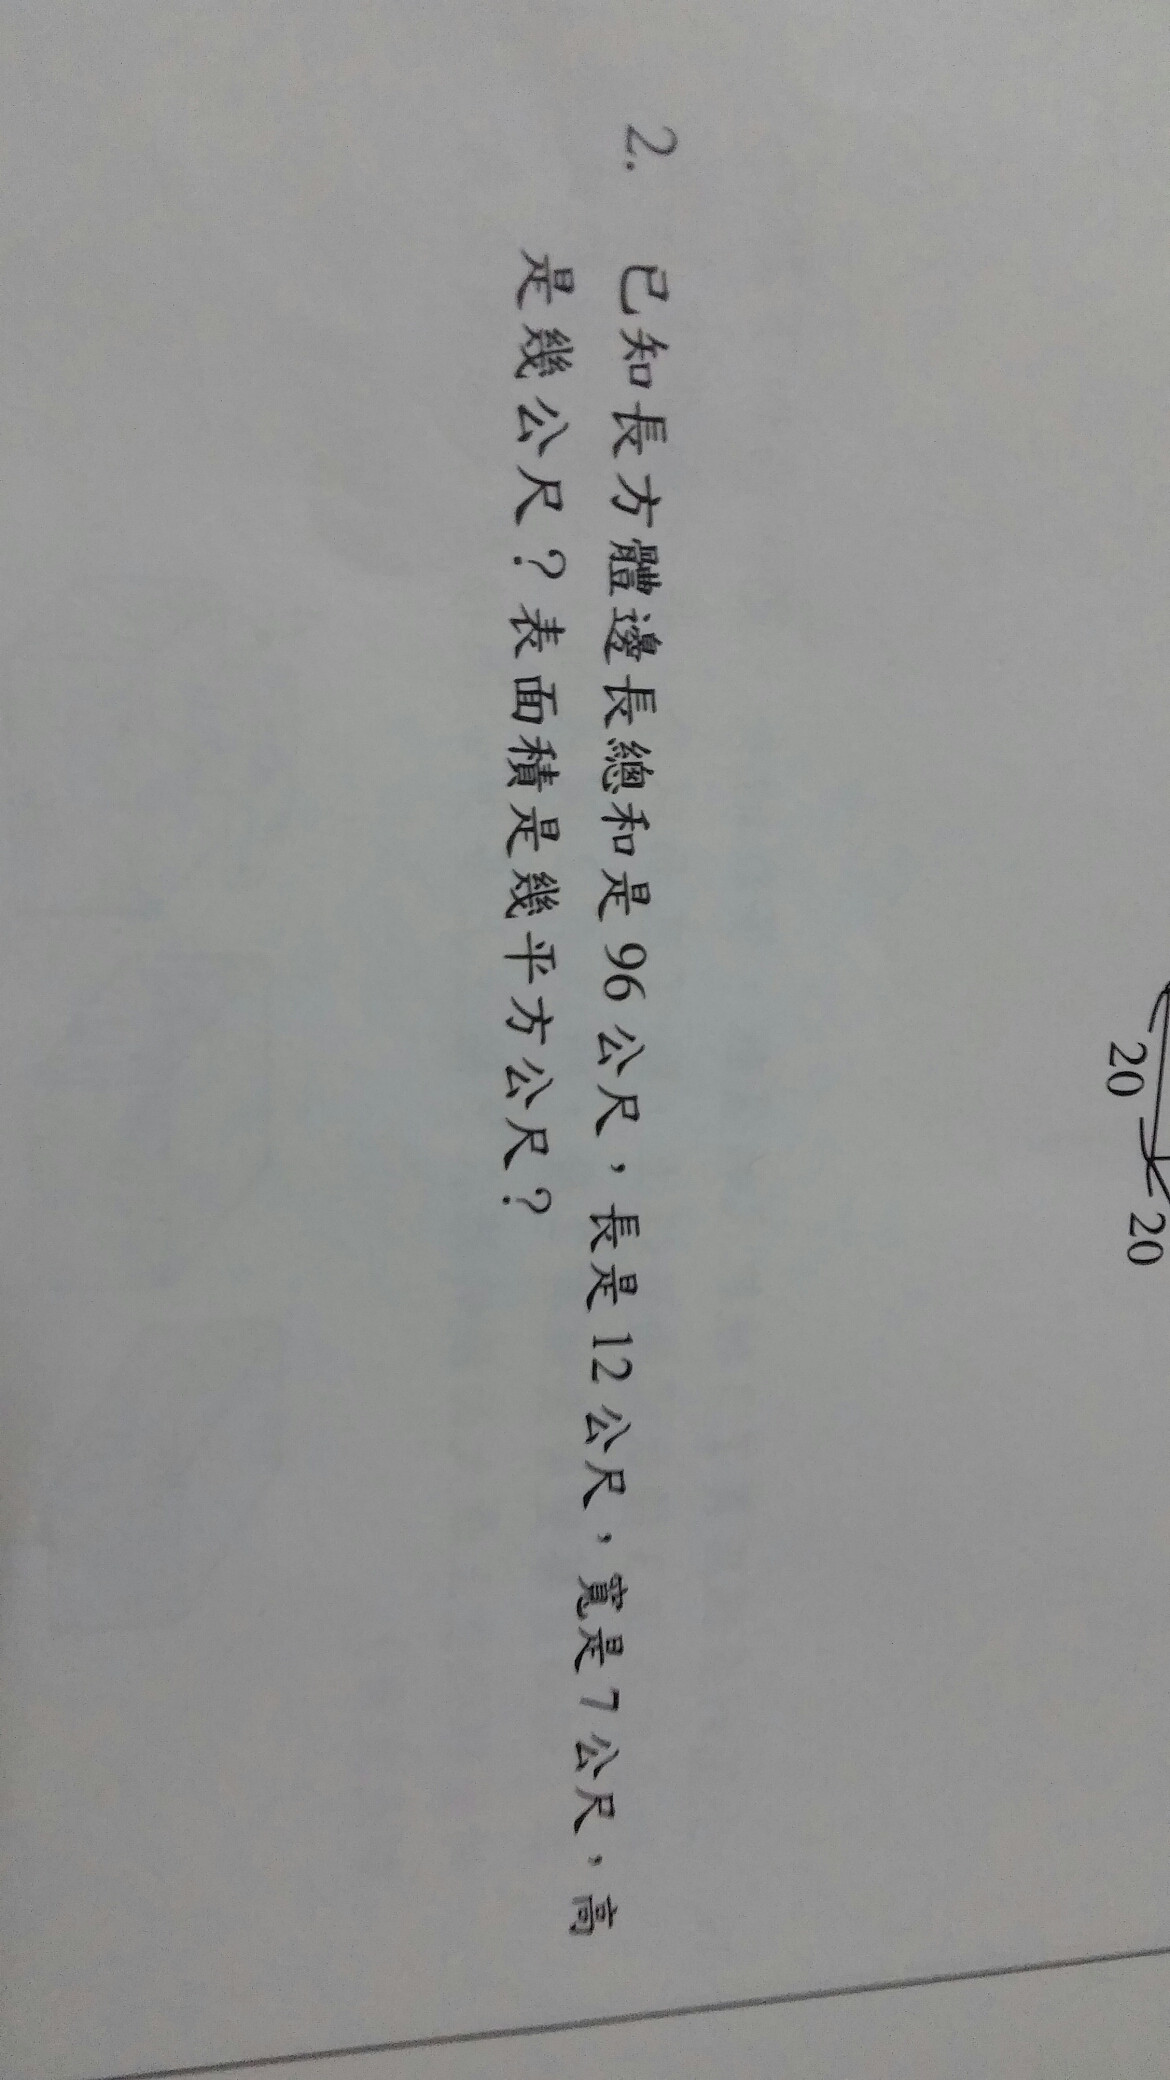 20
20
2. 已知長方體邊長總和是96公尺，長是12公尺，寬是7公尺，高
是幾公尺？表面積是幾平方公尺？